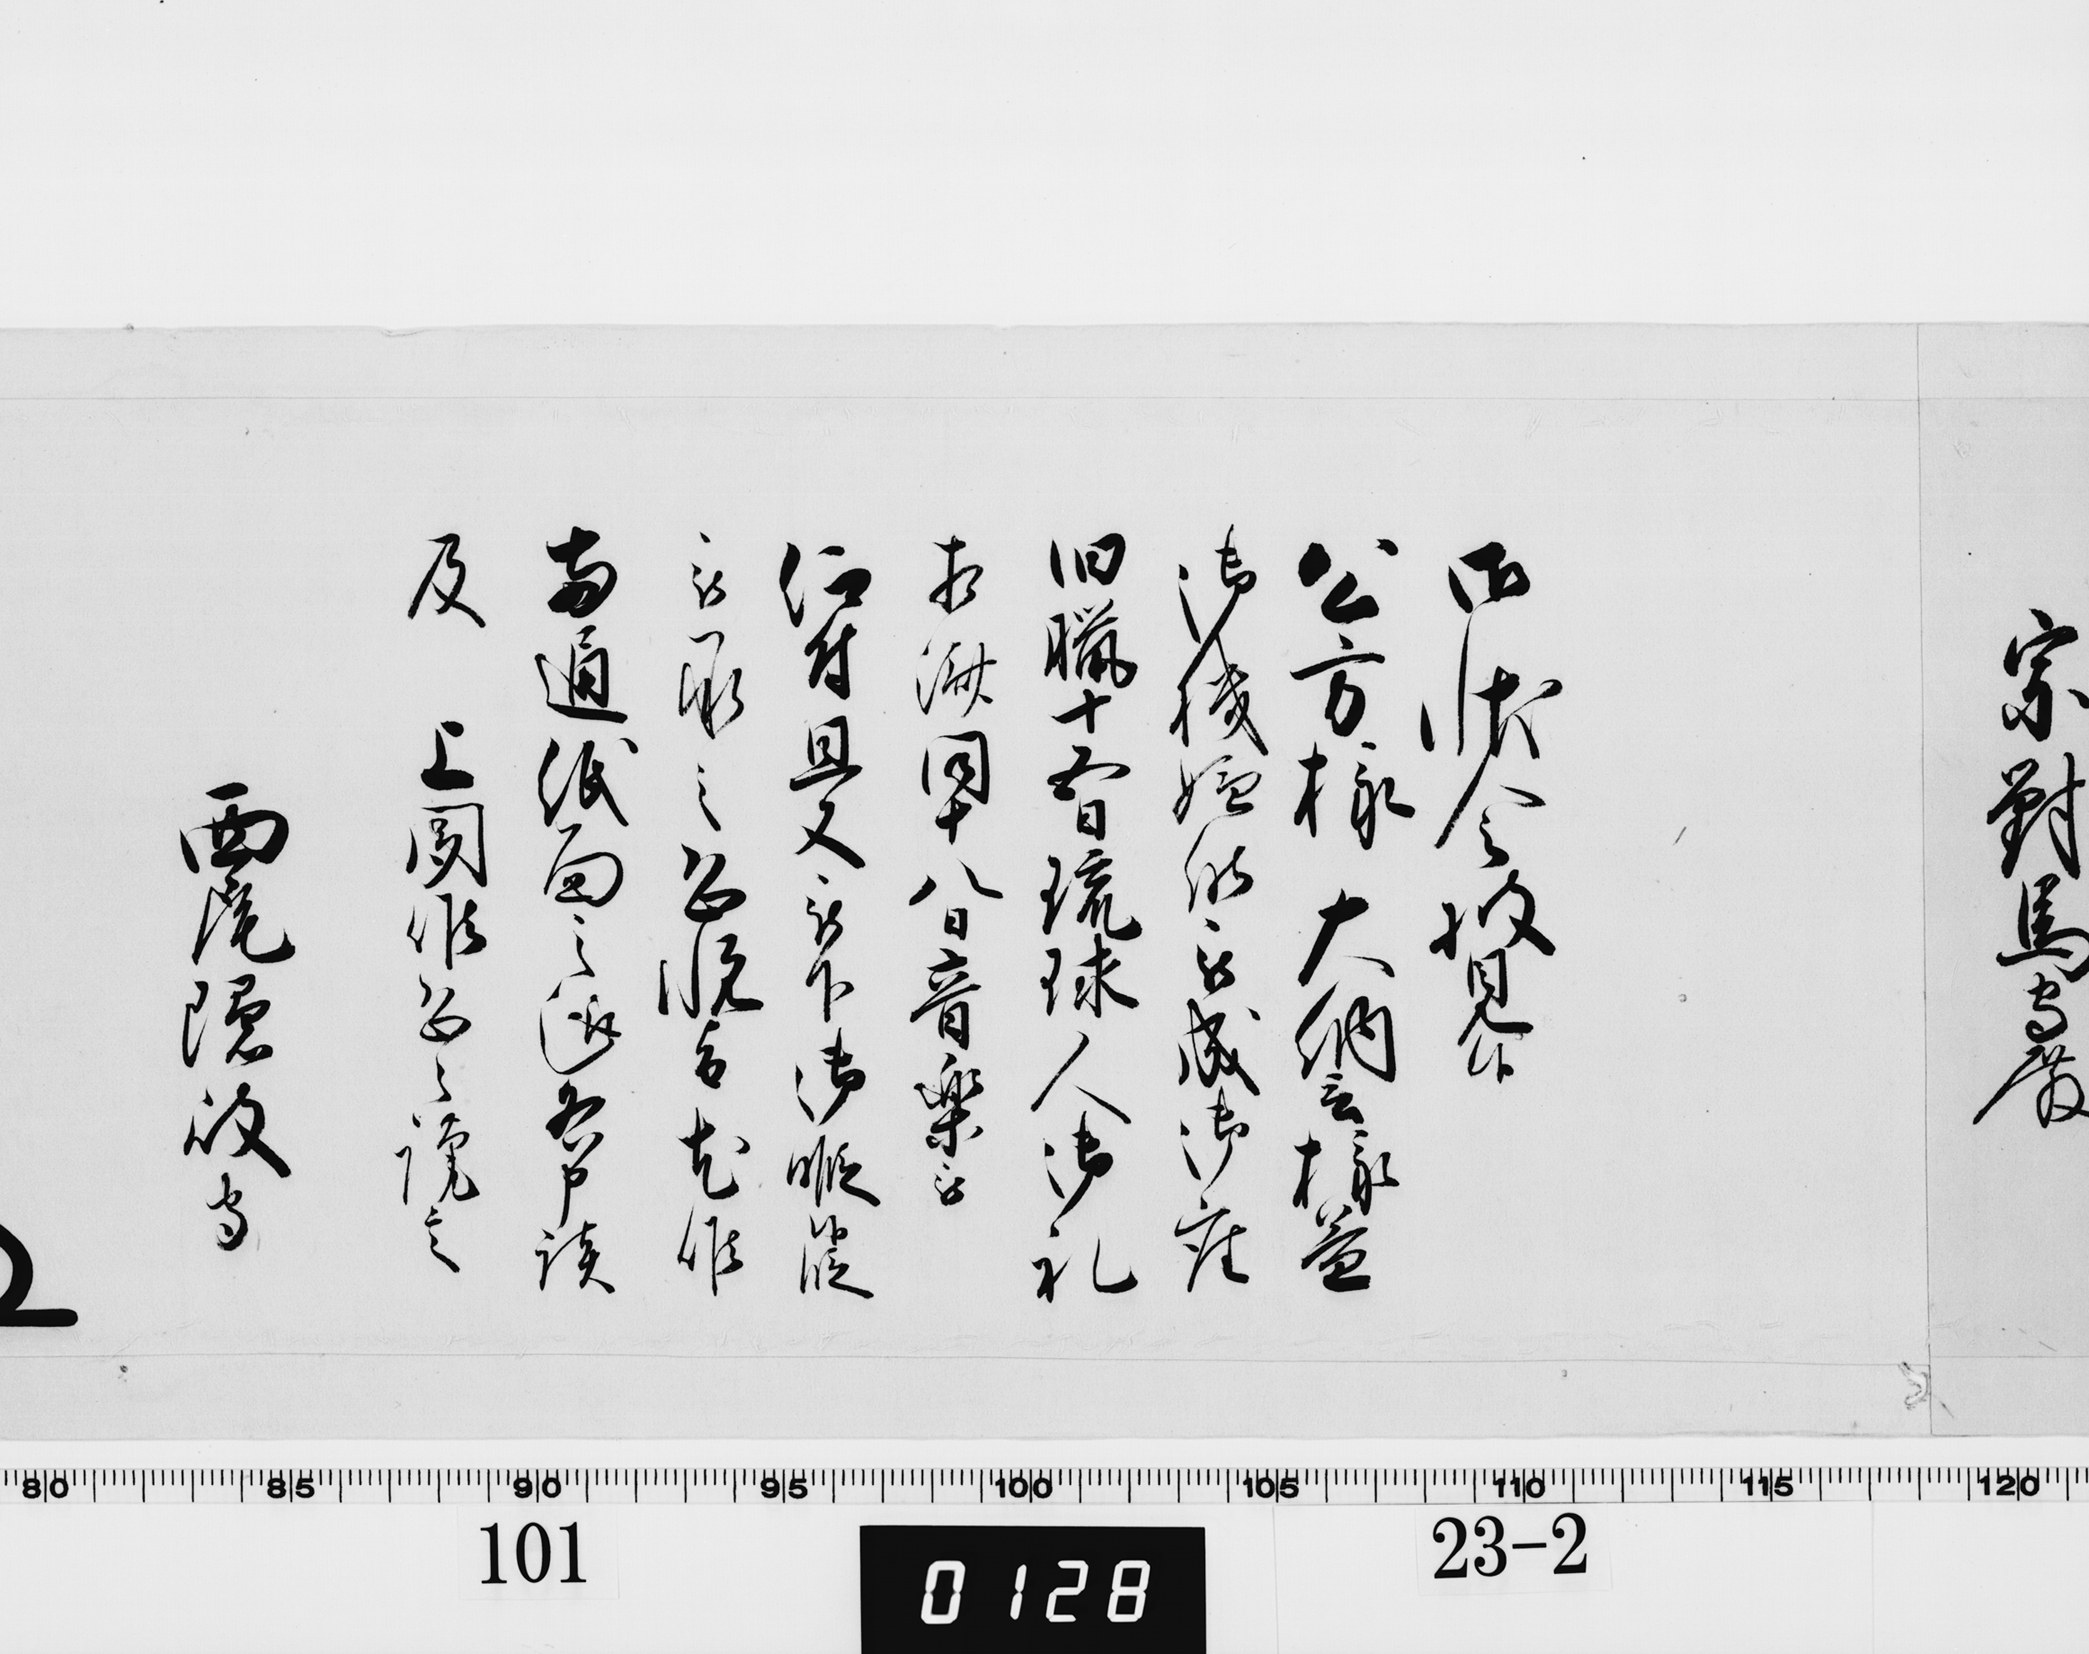 宗對馬守殿
御状令披見候
公方様 大納言様益
御機嫌能被成御座
旧臘十五日琉球人御礼
相済同十八日音楽被
仰付且又被下御暇候段
被承之恐悦旨尤候
両通紙面之趣各申談
及 上聞候恐々謹言
西尾隠岐守
80 85 90 95 100 105 110 115 120
101
0128
23-2